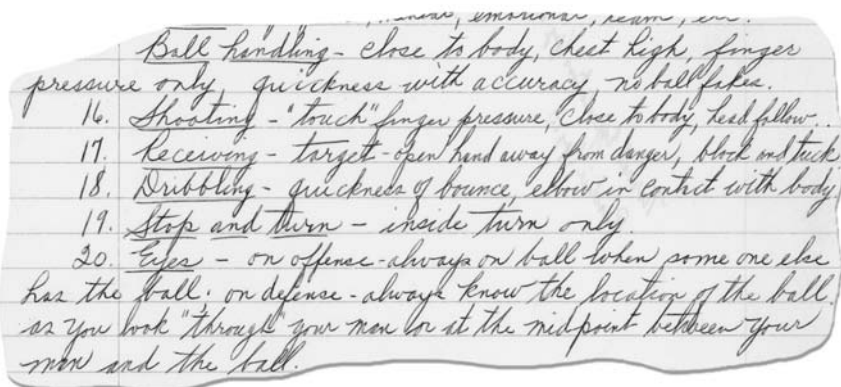 mental, emotional, team, etc.
Ball handling - close to body, chest high, finger
pressure only, quickness with accuracy, no ball fakes.
16. Shooting - "touch" finger pressure, close to body, head follow...
17. Receiving - target - open hand away from danger, block and tuck
18. Dribbling - quickness of bounce, elbow in contact with body
19. Stop and turn - inside turn only.
20. Eyes - on offense - always on ball when some one else
has the ball; on defense - always know the location of the ball
as you look "through" your man or at the midpoint between your
man and the ball.